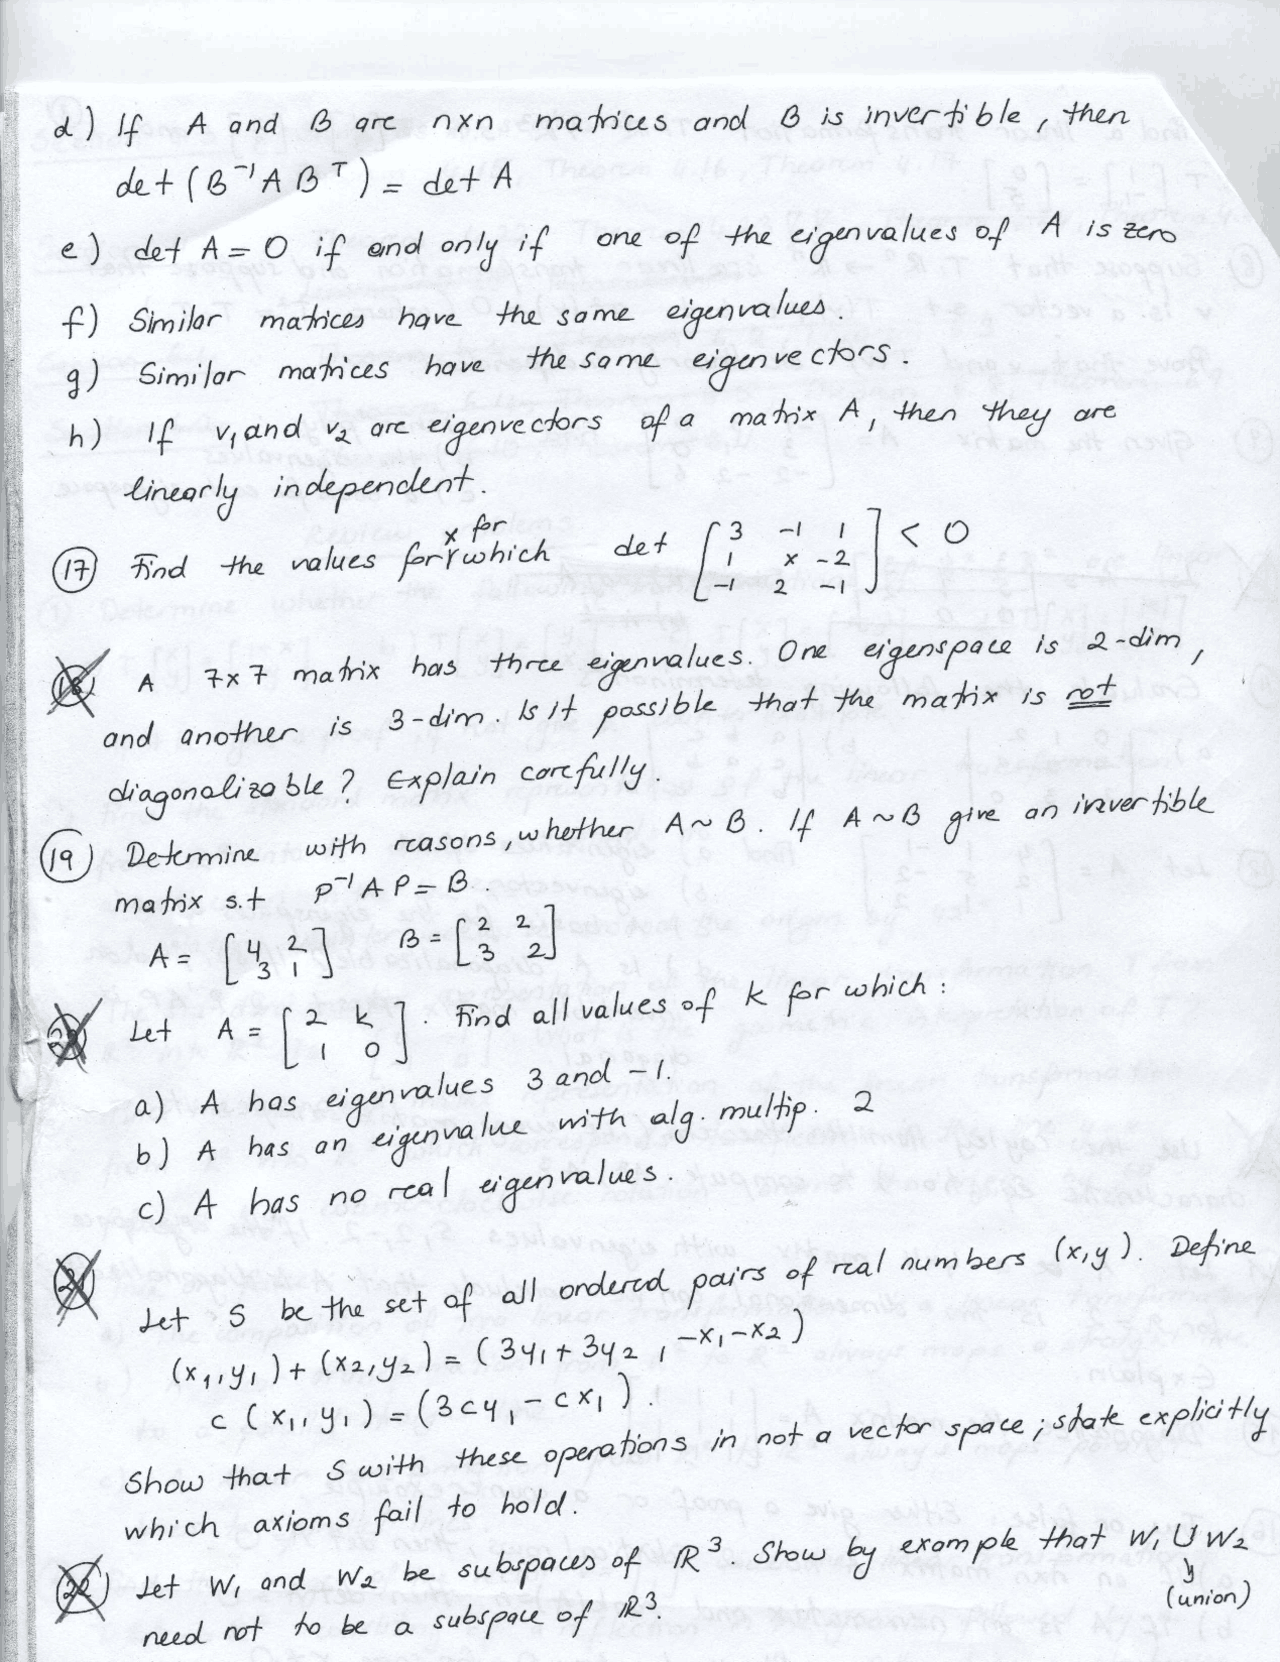 d) If A and B are nxn matrices and B is invertible, then
det (B⁻¹ A Bᵀ) = det A
e) det A = 0 if and only if one of the eigenvalues of A is zero
f) Similar matrices have the same eigenvalues.
g) Similar matrices have the same eigenvectors.
h) If v₁ and v₂ are eigenvectors of a matrix A, then they are
linearly independent.
x for
(17) Find the values for which det [3 -1 1 ; 1 x -2 ; -1 2 -1] < 0
(18) A 7x7 matrix has three eigenvalues. One eigenspace is 2-dim,
and another is 3-dim. Is it possible that the matrix is not
diagonalizable? Explain carefully.
(19) Determine with reasons, whether A ~ B. If A ~ B give an invertible
matrix s.t P⁻¹ A P = B.
A = [4 2 ; 3 1] B = [2 2 ; 3 2]
Let A = [2 k ; 1 0]. Find all values of k for which:
a) A has eigenvalues 3 and -1.
b) A has an eigenvalue with alg. multip. 2
c) A has no real eigenvalues.
Let S be the set of all ordered pairs of real numbers (x,y). Define
(x₁,y₁) + (x₂,y₂) = (3y₁ + 3y₂, -x₁-x₂)
c (x₁, y₁) = (3cy₁ - cx₁).
Show that S with these operations in not a vector space; state explicitly
which axioms fail to hold.
(22) Let W₁ and W₂ be subspaces of ℝ³. Show by example that W₁ ∪ W₂
(union)
need not to be a subspace of ℝ³.